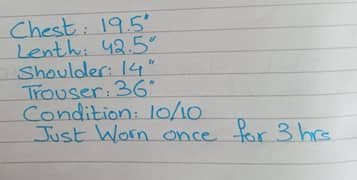 Chest: 19.5"
Lenth: 42.5"
Shoulder: 14"
Trouser: 36"
Condition: 10/10
Just Worn once for 3 hrs